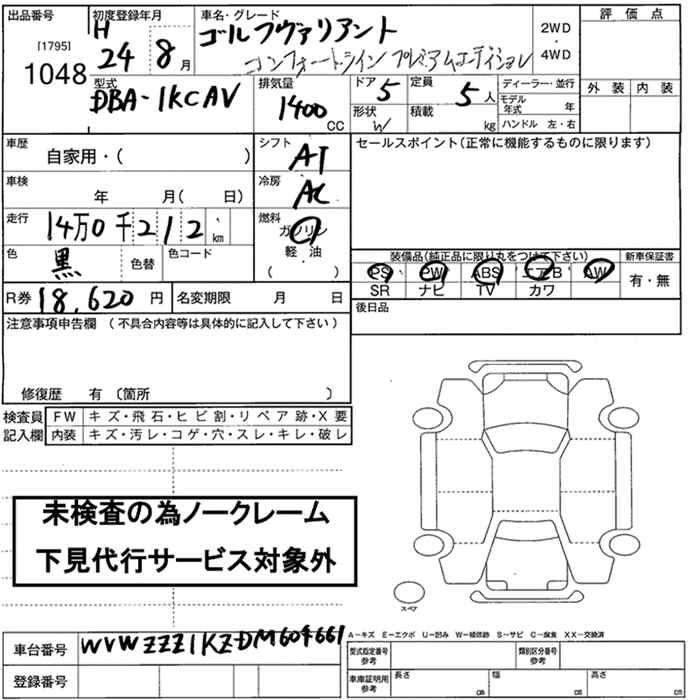 出品番号 初度登録年月 車名・グレード 評価点
[1795] H ゴルフヴァリアント 2WD
1048 24 8月 コンフォートライン プレミアムエディション 4WD
型式 排気量 ドア 定員 ディーラー・並行 外装 内装
DBA-1KCAV 1400 CC 5 5人 モデル年式 年
形状 W 積載 kg ハンドル 左・右
車歴 自家用・( ) シフト AT セールスポイント(正常に機能するものに限ります)
車検 年 月( 日) 冷房 AC
走行 14万0千212km 燃料 ガソリン
色 黒 色替 色コード 軽・油
( )
装備品(純正品に限り丸をつけて下さい) 新車保証書
PS PW ABS エアB AW 有・無
SR ナビ TV カワ
R券 18,620円 名変期限 月 日 後日品
注意事項申告欄(不具合内容等は具体的に記入して下さい)
修復歴 有〔箇所 〕
検査員 FW キズ・飛石・ヒビ割・リペア跡・X要
記入欄 内装 キズ・汚レ・コゲ・穴・スレ・キレ・破レ
未検査の為ノークレーム
下見代行サービス対象外
スペア
A-キズ E-エクボ U-凹み W-補修跡 S-サビ C-腐食 XX-交換済
車台番号 WVWZZZ1KZDM604661 型式指定番号 参考 類別区分番号 参考
登録番号 車庫証明用 参考 長さ cm 幅 cm 高さ cm